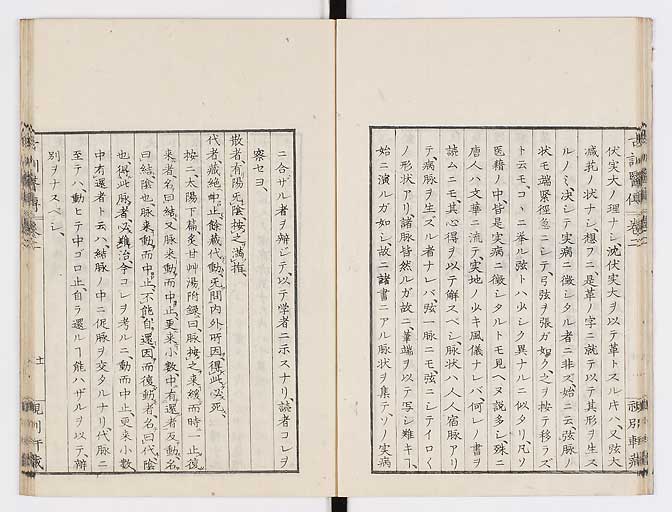 伏実大ノ理ナシ、沈伏実大ヲ以テ革トスル片ハ、又弦大
減芤ノ状ナシ、想フニ、是革ノ字ニ就テ以テ其形ヲ生ス
ルノミ、决シテ実病ニ徴シタル者ニ非ズ、始ニ云弦脉ノ
状モ端緊徑急ニシテ、弓弦ヲ張ガ如ク、之ヲ按テ移ラズ
ト云モ、コヽニ挙ル弦トハ少シク異ナルニ似タリ、凡ソ
医籍ノ中、皆是実病ニ徴シタルトモ見ヘヌ説多シ、殊ニ
唐人ハ文華ニ流テ、実地ノ少キ風儀ナレバ、何レノ書ヲ
読ムニモ其心得ヲ以テ解スベシ、脉状ハ人人宿脉アリ
テ、病脉ヲ生ズル者ナレバ、弦一脉ニモ、弦ニシテイロく
ノ形状アリ、諸脉皆然ルガ故ニ、筆端ヲ以テ写シ難キヿ
始ニ演ルガ如シ、故ニ諸書ニアル脉状ヲ集テ、ソノ実病
ニ合ザル者ヲ辨ジテ、以テ学者ニ示スナリ、読者コレヲ
察セヨ、
散者有陽无陰、按之満指、
代者藏絶中止、餘藏代動、无間内外所因、得此必死、
按ニ太陽下篇炙甘艸湯附録曰、脉按之、来緩而時一止復
来者、名曰結、又脉来動而中止、更来小數中有還者反動、名
曰結陰也、脉来動而中止、不能自還、因而復動者、名曰代陰
也、得此脉者、必難治、今コレヲ考ルニ、動而中止、更来小數、
中有還者ト云ハ、結脉ノ中ニ促脉ヲ交タルナリ、代脉ニ
至テハ、動ヒテ中ゴロ止、自ラ還ルヿ能ハザルヲ以テ、辨
別ヲナスベシ、